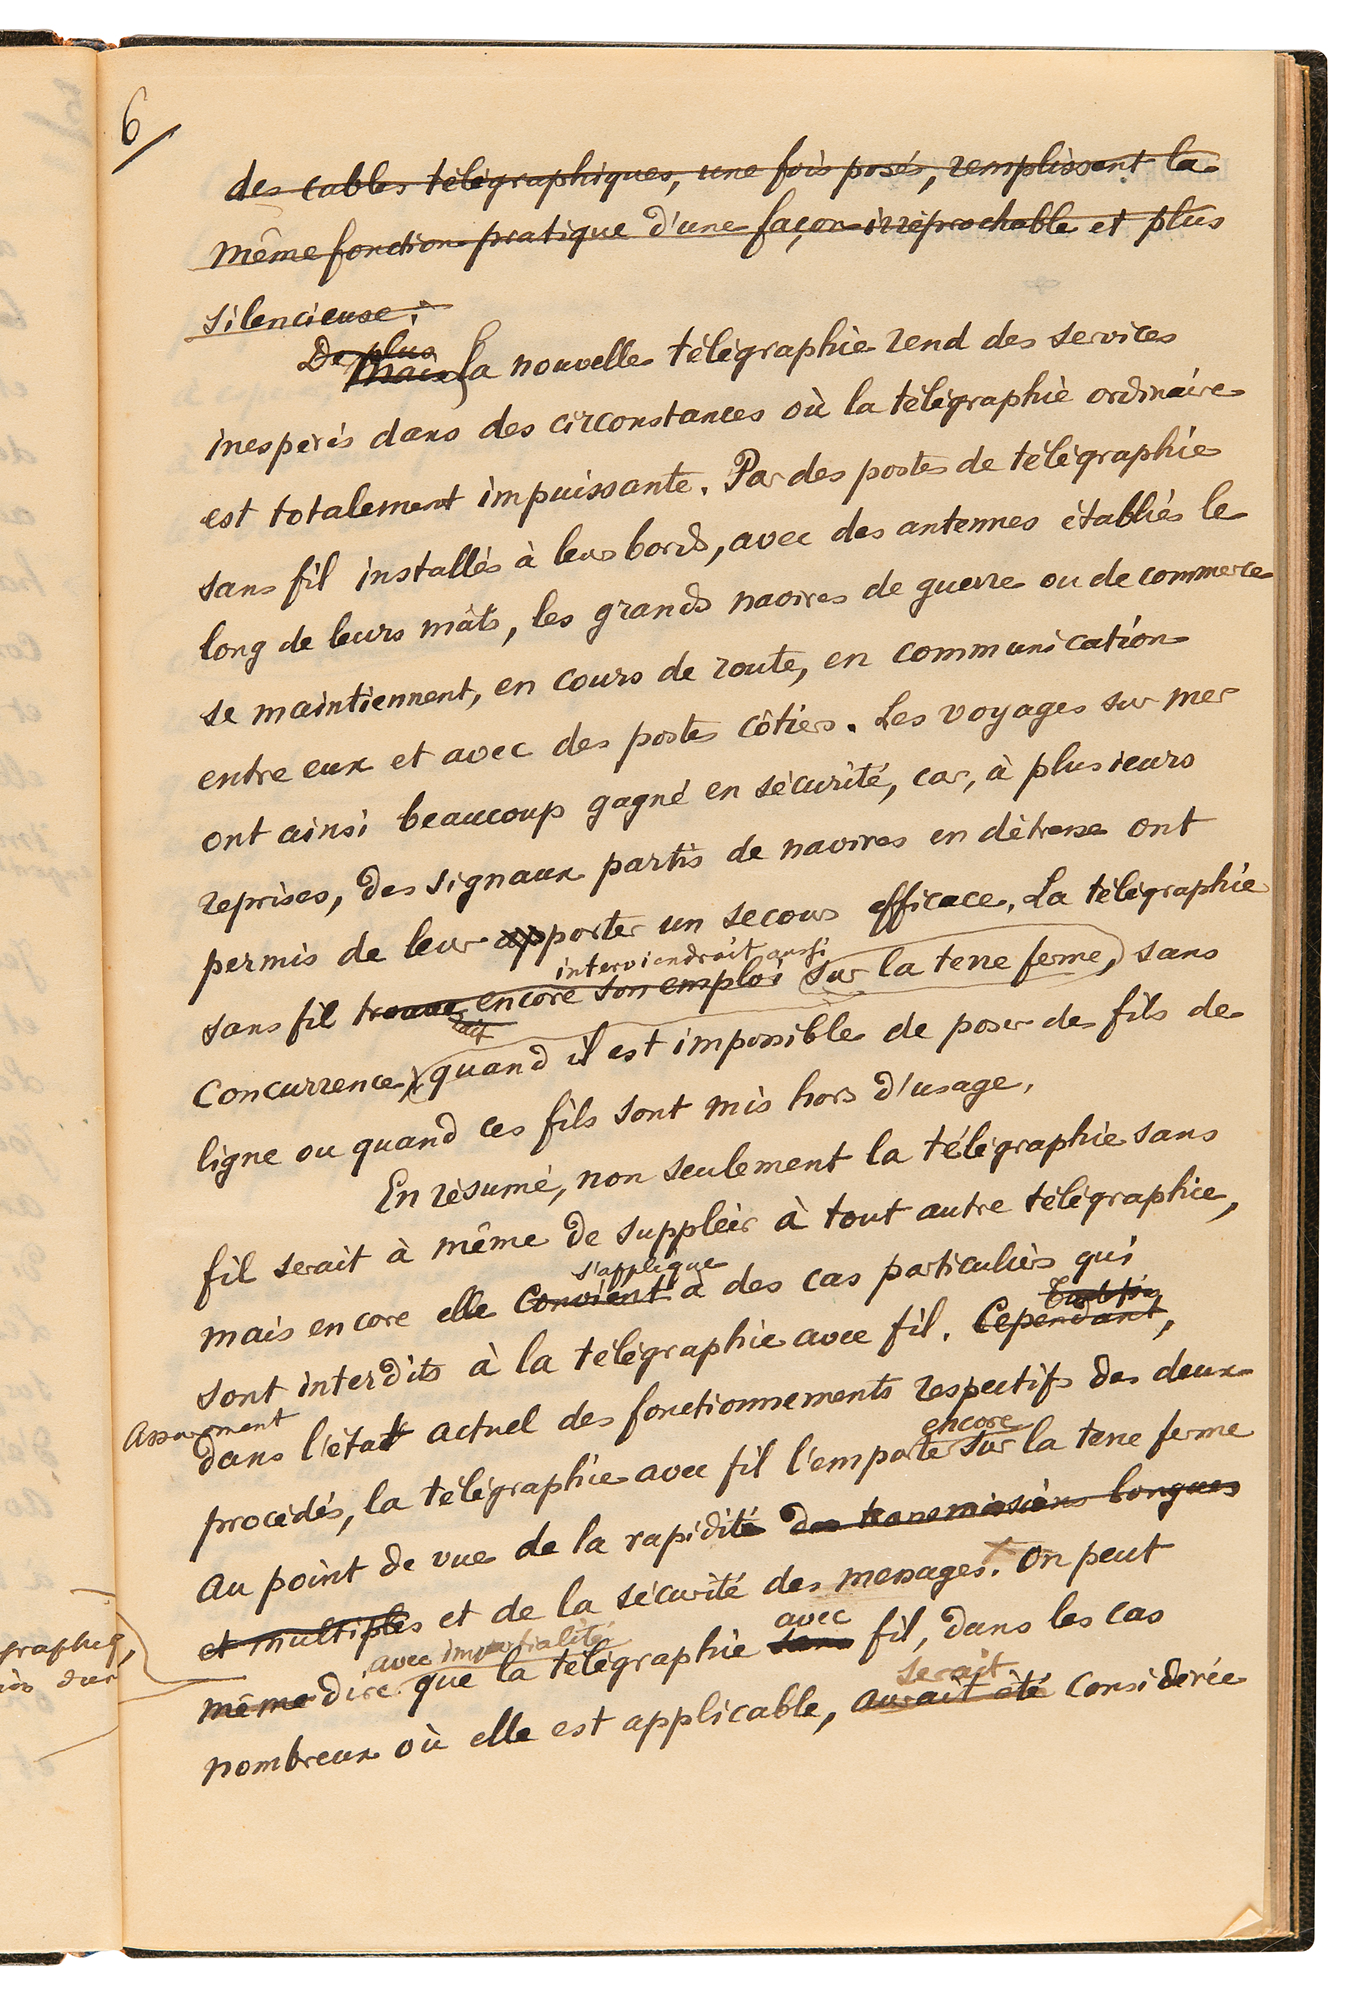 6/
des cables télégraphiques, une fois posés, remplissent la
même fonction pratique d'une façon irréprochable et plus
silencieuse.
De plus
Mais la nouvelle télégraphie rend des services
inespérés dans des circonstances où la télégraphie ordinaire
est totalement impuissante. Par des postes de télégraphie
sans fil installés à leurs bords, avec des antennes établies le
long de leurs mâts, les grands navires de guerre ou de commerce
se maintiennent, en cours de route, en communication
entre eux et avec des postes côtiers. Les voyages sur mer
ont ainsi beaucoup gagné en sécurité, car, à plusieurs
reprises, des signaux partis de navires en détresse ont
permis de leur apporter un secours efficace. La télégraphie
interviendrait aussi
sans fil trouve encore son emploi sur la terre ferme, sans
rait
concurrence, quand il est impossible de poser des fils de
ligne ou quand ces fils sont mis hors d'usage.
En résumé, non seulement la télégraphie sans
fil serait à même de suppléer à tout autre télégraphie,
s'applique
mais encore elle convient à des cas particuliers qui
sont interdits à la télégraphie avec fil. Cependant,
Assurément
dans l'état actuel des fonctionnements respectifs des deux
encore
procédés, la télégraphie avec fil l'emporte sur la terre ferme
au point de vue de la rapidité des transmissions longues
et multiples et de la sécurité des messages. On peut
avec impartialité avec
même dire que la télégraphie sans fil, dans les cas
serait
nombreux où elle est applicable, aurait été considérée